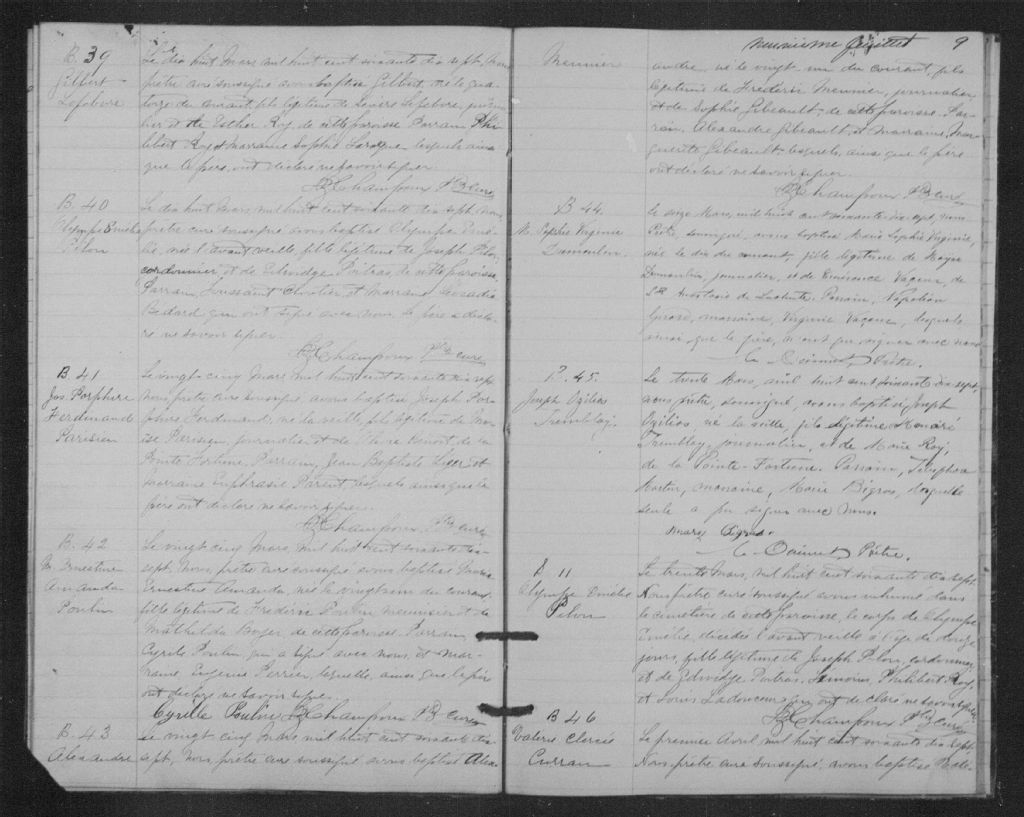 B. 39
Gilbert
Lefebvre
Le dix huit Mars mil huit cent soixante dix sept, Nous
prêtre curé soussigné avons baptisé Gilbert, né le qua-
torze du courant, fils légitime de Sévère Lefebvre, journa-
lier et de Esther Roy de cette paroisse. Parrain Phi
libert Roy et marraine Sophie Larocque, lesquels ainsi
que le père, ont déclaré ne savoir signer.
Champoux Ptre curé
B. 40
Olympe Emélie
Pilon
Le dix huit Mars, mil huit cent soixante dix sept, nous,
prêtre curé soussigné avons baptisé Olympe Emé-
lie, née l'avant veille, fille légitime de Joseph Pilon,
cordonnier, et de Edwidge Poitras, de cette paroisse.
Parrain, Toussaint et Marraine
Bédard qui ont signé avec nous. Le père a décla-
ré ne savoir signer.
Champoux Ptre curé
B. 41
Jos. Porphire
Ferdinand
Parisien
Le vingt cinq Mars mil huit cent soixante dix sept
nous, prêtre curé soussigné, avons baptisé Joseph Por-
phire Ferdinand, né la veille, fils légitime de Moï-
se Parisien, journalier et de Benoit, de la
Pointe Fortune. Parrain, Jean Baptiste et
marraine Euphrasie Parent, lesquels ainsi que le
père ont déclaré ne savoir signer.
Champoux Ptre curé
B. 42
M. Ernestine
Amanda
Poulin
Le vingt cinq Mars, mil huit cent soixante dix
sept, Nous, prêtre curé soussigné avons baptisé Marie
Ernestine Amanda, née le vingt un du courant,
fille légitime de Frédéric Poulin menuisier et de
Mathilda Boyer, de cette paroisse. Parrain
Cyrille Poulin qui a signé avec nous, et mar-
raine Eugénie Perrier, laquelle, ainsi que le père
ont déclaré ne savoir signer.
Cyrille Poulin Champoux Ptre curé
B. 43
Alexandre
Le vingt cinq Mars mil huit cent soixante dix
sept, Nous prêtre curé soussigné avons baptisé Alex-
neuvième feuillet 9
Meunier
andre, né le vingt un du courant, fils
légitime de Frédéric Meunier, journalier,
et de Sophie Gibeault, de cette paroisse. Par-
rain, Alexandre Gibeault, et Marraine, Mar-
guerite Gibeault, lesquels, ainsi que le père
ont déclaré ne savoir signer.
Champoux Ptre curé
B 44.
M. Sophie Virginie
Dumoulin.
Le seize Mars, mil huit cent soixante dix sept, nous
Prêtre, soussigné, avons baptisé Marie Sophie Virginie,
née le dix du courant, fille légitime de
Dumoulin, journalier, et de Vaçeur, de
Ste Anastasie de Lachute. Parrain, Napoléon
Girard, marraine, Virginie Vaçeur, lesquels
ainsi que le père, n'ont pu signer avec nous.
Ouimet, Prêtre.
B. 45.
Joseph Ozilias
Tremblay.
Le trente Mars, mil huit cent soixante dix sept,
nous prêtre, soussigné avons baptisé Joseph
Ozilias, né la veille, fils légitime
Tremblay, journalier, et de Marie Roy,
de la Pointe-Fortune. Parrain, Télesphore
Martin, marraine, Marie Bigras, laquelle
seule a pu signer avec nous.
Mary Bigras.
Ouimet Prêtre.
S 11
Olympe Emélie
Pilon
Le trente Mars, mil huit cent soixante dix sept
Nous prêtre curé soussigné avons inhumé dans
le cimetière de cette paroisse, le corps de Olympe
Emélie, décédée l'avant veille à l'âge de douze
jours, fille légitime de Joseph Pilon, cordonnier,
et de Edwidge Poitras. Témoins, Philibert Roy,
et Louis Ladouceur qui ont déclaré ne savoir signer
Champoux Ptre curé
B 46
Valérie Clercie
Curran
Le premier Avril mil huit cent soixante dix sept.
Nous prêtre curé soussigné, avons baptisé